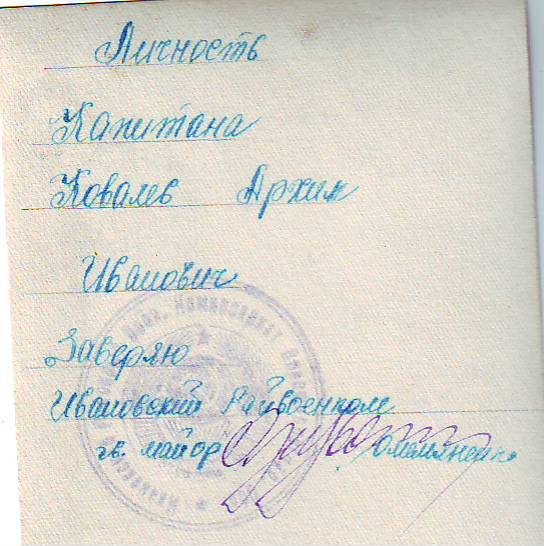 Личность
Капитана
Ковалев Архип
Иванович
Заверяю
Ивановский Райвоенком
гв. майор Омельяненко